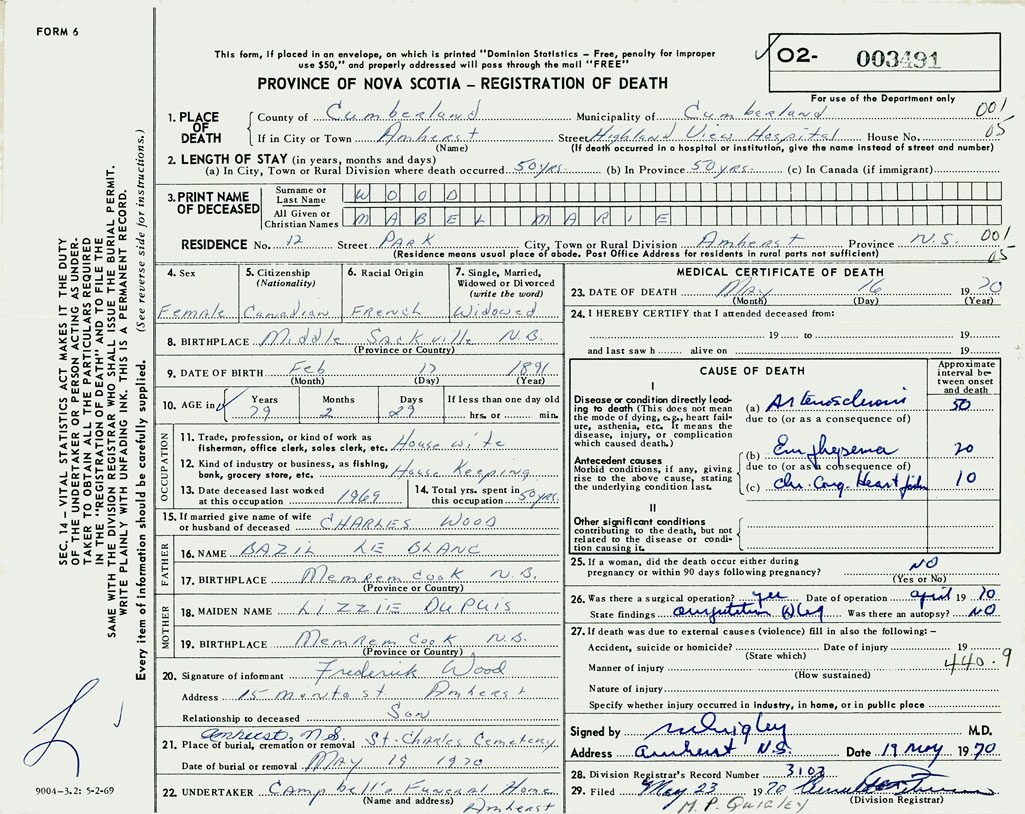 FORM 6
This form, if placed in an envelope, on which is printed "Dominion Statistics – Free, penalty for improper
use $50," and properly addressed will pass through the mail "FREE"
PROVINCE OF NOVA SCOTIA – REGISTRATION OF DEATH
O2- 003491
For use of the Department only
SEC. 14 – VITAL STATISTICS ACT MAKES IT THE DUTY
OF THE UNDERTAKER OR PERSON ACTING AS UNDER-
TAKER TO OBTAIN ALL THE PARTICULARS REQUIRED
IN THE "REGISTRATION OF DEATH" AND TO FILE THE
SAME WITH THE DIVISION REGISTRAR WHO SHALL ISSUE THE BURIAL PERMIT.
WRITE PLAINLY WITH UNFADING INK. THIS IS A PERMANENT RECORD.
Every item of information should be carefully supplied. (See reverse side for instructions.)
1. PLACE OF DEATH
County of Cumberland Municipality of Cumberland 001
If in City or Town Amherst Street Highland View Hospital House No. 05
(Name) (If death occurred in a hospital or institution, give the name instead of street and number)
2. LENGTH OF STAY (in years, months and days)
(a) In City, Town or Rural Division where death occurred 50 yrs. (b) In Province 50 yrs. (c) In Canada (if immigrant)
3. PRINT NAME OF DECEASED
Surname or Last Name WOOD
All Given or Christian Names MABEL MARIE
RESIDENCE No. 12 Street PARK City, Town or Rural Division Amherst Province N.S. 001
(Residence means usual place of abode. Post Office Address for residents in rural parts not sufficient) 05
4. Sex
Female
5. Citizenship (Nationality)
Canadian
6. Racial Origin
French
7. Single, Married, Widowed or Divorced (write the word)
Widowed
8. BIRTHPLACE Middle Sackville N.B.
(Province or Country)
9. DATE OF BIRTH Feb 17 1891
(Month) (Day) (Year)
10. AGE in Years 79 Months 2 Days 29 If less than one day old hrs. or min.
OCCUPATION
11. Trade, profession, or kind of work as fisherman, office clerk, sales clerk, etc. House wife
12. Kind of industry or business, as fishing, bank, grocery store, etc. House Keeping
13. Date deceased last worked at this occupation 1969 14. Total yrs. spent in this occupation 50 yrs.
15. If married give name of wife or husband of deceased CHARLES WOOD
FATHER
16. NAME BAZIL LE BLANC
17. BIRTHPLACE Memrem Cook N.B.
(Province or Country)
MOTHER
18. MAIDEN NAME LIZZIE DUPUIS
19. BIRTHPLACE Memrem Cook N.B.
(Province or Country)
20. Signature of informant Frederick Wood
Address 15 Amherst
Relationship to deceased Son
Amherst, N.S.
21. Place of burial, cremation or removal St. Charles Cemetery
Date of burial or removal May 19 1970
22. UNDERTAKER Campbell's Funeral Home
(Name and address) Amherst
9004–3.2: 5-2-69
MEDICAL CERTIFICATE OF DEATH
23. DATE OF DEATH May 16 1970
(Month) (Day) (Year)
24. I HEREBY CERTIFY that I attended deceased from:
19 to 19
and last saw h alive on 19
CAUSE OF DEATH
Approximate interval between onset and death
I
Disease or condition directly leading to death (This does not
the mode of dying, e.g., heart failure, asthenia, etc. It means the
disease, injury, or complication which caused death.)
(a) Arteriosclerosis 50
due to (or as a consequence of)
Antecedent causes
Morbid conditions, if any, giving rise to the above cause, stating the underlying condition last.
(b) Emphysema 20
due to (or as a consequence of)
(c) Chr. Cong. Heart 10
II
Other significant conditions
Contributing to the death, but not related to the disease or condition causing it.
25. If a woman, did the death occur either during pregnancy or within 90 days following pregnancy? NO
(Yes or No)
26. Was there a surgical operation? yes Date of operation april 1970
State findings amputation leg Was there an autopsy? NO
27. If death was due to external causes (violence) fill in also the following: –
Accident, suicide or homicide? Date of injury 19
(State which) 440.9
Manner of injury
(How sustained)
Nature of injury
Specify whether injury occurred in industry, in home, or in public place
Signed by M.D.
Address Amherst N.S. Date 19 May 1970
28. Division Registrar's Record Number 3103
29. Filed May 23 1970
(Division Registrar)
M.P. QUIGLEY